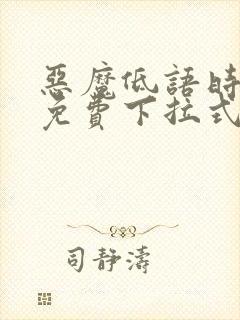 惡魔低語時
免費下拉式
司靜濤